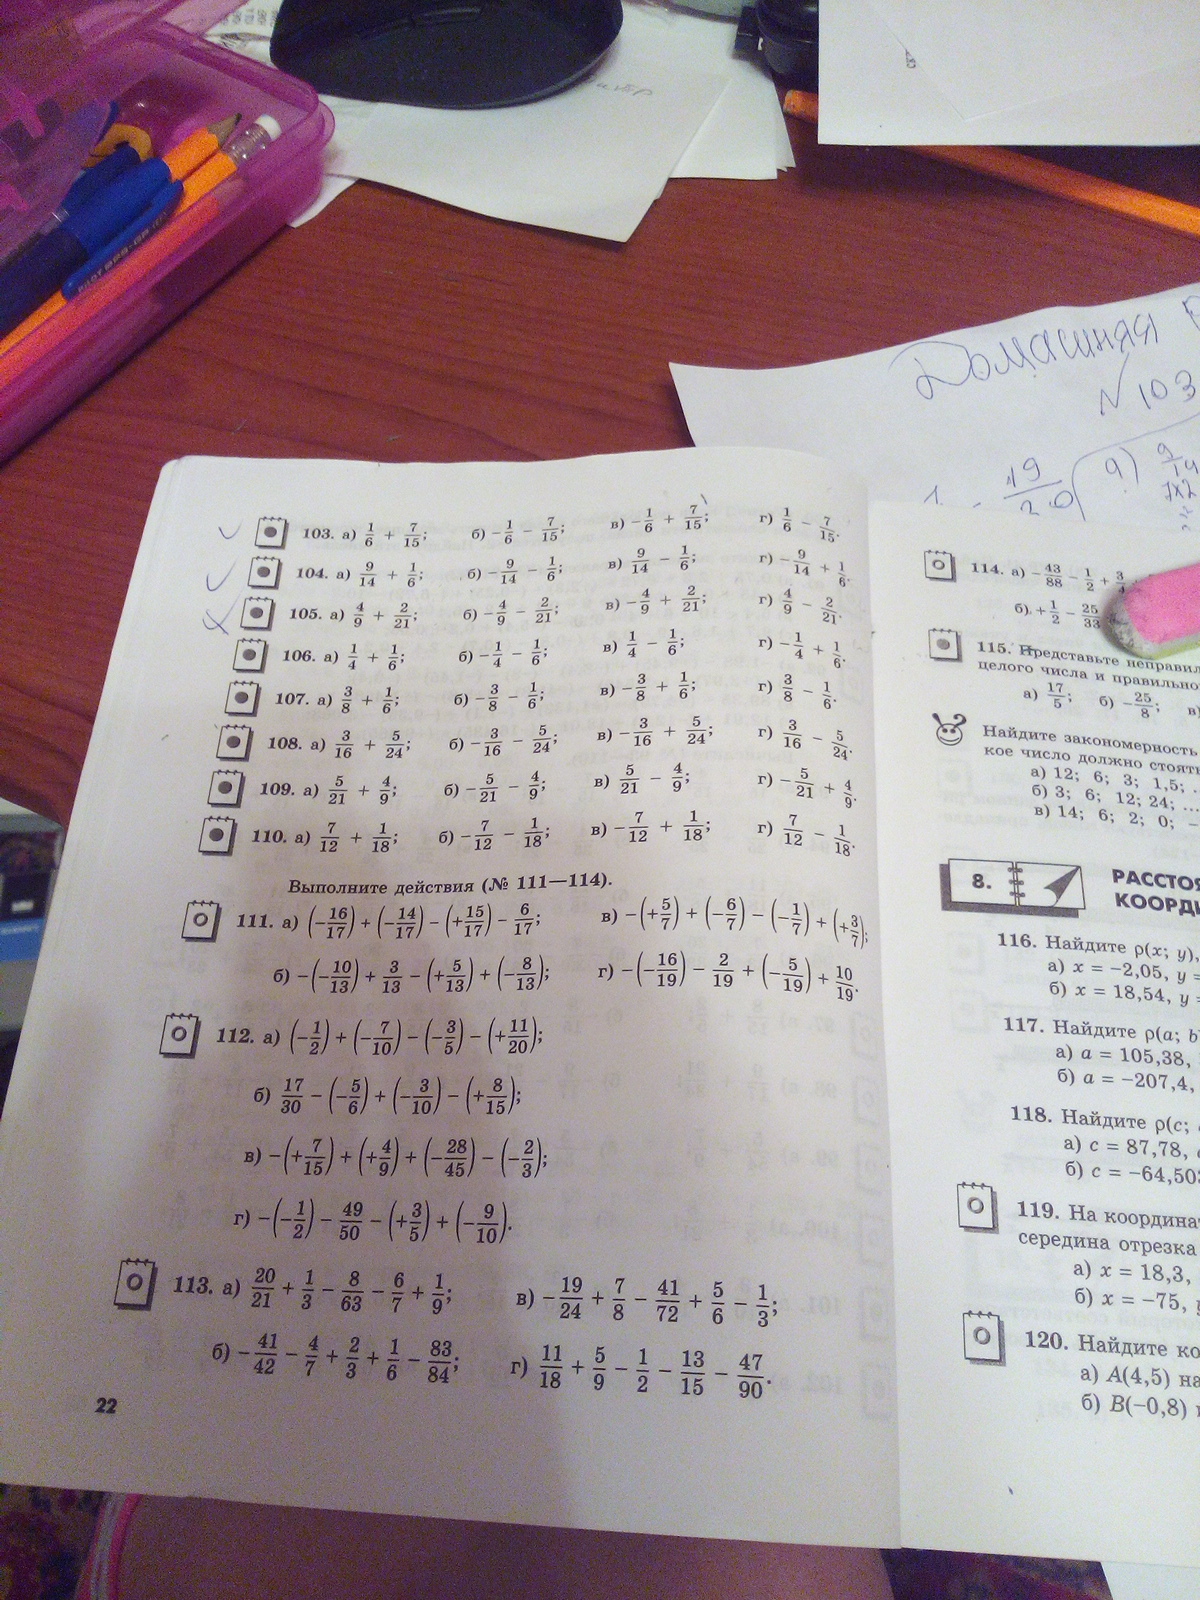 Домашняя
N 103
103. а) 1/6 + 7/15; б) −1/6 − 7/15; в) −1/6 + 7/15; г) 1/6 − 7/15.
104. а) 9/14 + 1/6; б) −9/14 − 1/6; в) 9/14 − 1/6; г) −9/14 + 1/6.
105. а) 4/9 + 2/21; б) −4/9 − 2/21; в) −4/9 + 2/21; г) 4/9 − 2/21.
106. а) 1/4 + 1/6; б) −1/4 − 1/6; в) 1/4 − 1/6; г) −1/4 + 1/6.
107. а) 3/8 + 1/6; б) −3/8 − 1/6; в) −3/8 + 1/6; г) 3/8 − 1/6.
108. а) 3/16 + 5/24; б) −3/16 − 5/24; в) −3/16 + 5/24; г) 3/16 − 5/24.
109. а) 5/21 + 4/9; б) −5/21 − 4/9; в) 5/21 − 4/9; г) −5/21 + 4/9.
110. а) 7/12 + 1/18; б) −7/12 − 1/18; в) −7/12 + 1/18; г) 7/12 − 1/18.
Выполните действия (№ 111—114).
111. а) (−16/17) + (−14/17) − (+15/17) − 6/17; в) −(+5/7) + (−6/7) − (−1/7) + (+3/7);
б) −(−10/13) + 3/13 − (+5/13) + (−8/13); г) −(−16/19) − 2/19 + (−5/19) + 10/19.
112. а) (−1/2) + (−7/10) − (−3/5) − (+11/20);
б) 17/30 − (−5/6) + (−3/10) − (+8/15);
в) −(+7/15) + (+4/9) + (−28/45) − (−2/3);
г) −(−1/2) − 49/50 − (+3/5) + (−9/10).
113. а) 20/21 + 1/3 − 8/63 − 6/7 + 1/9; в) −19/24 + 7/8 − 41/72 + 5/6 − 1/3;
б) −41/42 − 4/7 + 2/3 + 1/6 − 83/84; г) 11/18 + 5/9 − 1/2 − 13/15 − 47/90.
22
114. а) −43/88 − 1/2 +
б) +1/2 − 25/33
115. Представьте
целого числа и
а) 17/5; б) −25/8; в)
Найдите закономерность
кое число должно
а) 12; 6; 3; 1,5; ...
б) 3; 6; 12; 24; ...
в) 14; 6; 2; 0; −
8.
116. Найдите ρ(x; y),
а) x = −2,05, y =
б) x = 18,54, y =
117. Найдите ρ(a;
а) a = 105,38,
б) a = −207,4,
118. Найдите ρ(c;
а) c = 87,78,
б) c =
119. На
середина отрезка
а) x = 18,3,
б) x = −75,
120. Найдите
а) A(4,5)
б) B(−0,8)